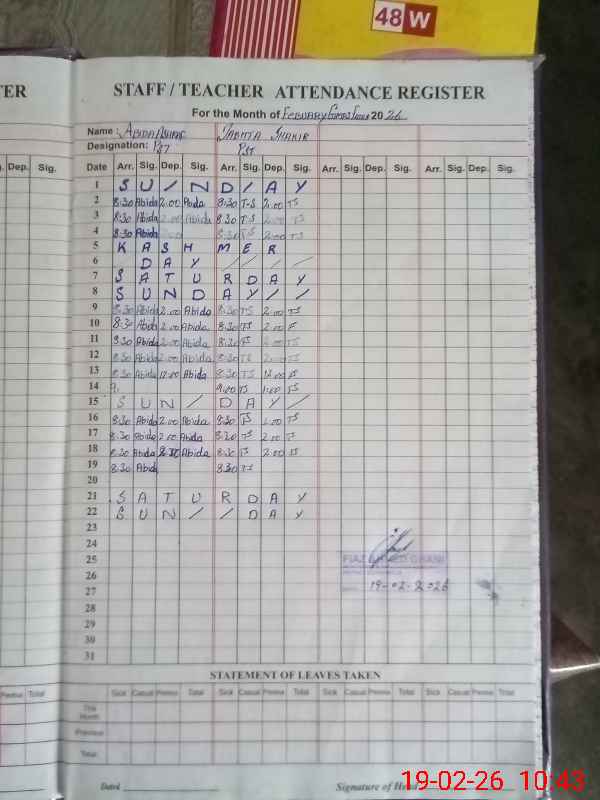 48 W
TER
STAFF / TEACHER ATTENDANCE REGISTER
For the Month of February 2026
Name : Abida Tabita Shakir
Designation: PST PST
Dep. Sig. Date Arr. Sig. Dep. Sig. Arr. Sig. Dep. Sig. Arr. Sig. Dep. Sig. Arr. Sig. Dep. Sig.
1 S U / N D / A Y
2 8:30 Abida 2.00 Abida 8:30 T-S 2.00 TS
3 8:30 Abida 2.00 Abida 8:30 TS 2.00 TS
4 8:30 Abida 8:30 TS 2.00 TS
5 K A S H M E R
6 D A Y / / / /
7 S A T U R D A Y
8 S U N D A Y / /
9 8:30 Abida 2.00 Abida 8:30 TS 2.00 TS
10 8:30 Abida 2.00 Abida 8:30 TS 2.00
11 8:30 Abida 2.00 Abida 8:30 TS 2.00 TS
12 8:30 Abida 2.00 Abida 8:30 TS 2.00 TS
13 8:30 Abida 12.00 Abida 8:30 TS 12.00
14 9. 9:00 TS 1:00 TS
15 S U N / D A Y /
16 8:30 Abida 2.00 Abida 8:30 TS 2.00 TS
17 8:30 Abida 2.00 Abida 8:30 TS 2.00 TS
18 8:30 Abida Abida 8:30 TS 2.00 TS
19 8:30 Abida 8:30 TS
20
21 S A T U R D A Y
22 S U N / / D A Y
23
24
25
26 19-02-2026
27
28
29
30
31
STATEMENT OF LEAVES TAKEN
Total Sick Casual Total Sick Casual Total Sick Casual Total Sick Casual Total
This Month
Previous
Total
Dated Signature of Head
19-02-26 10:43